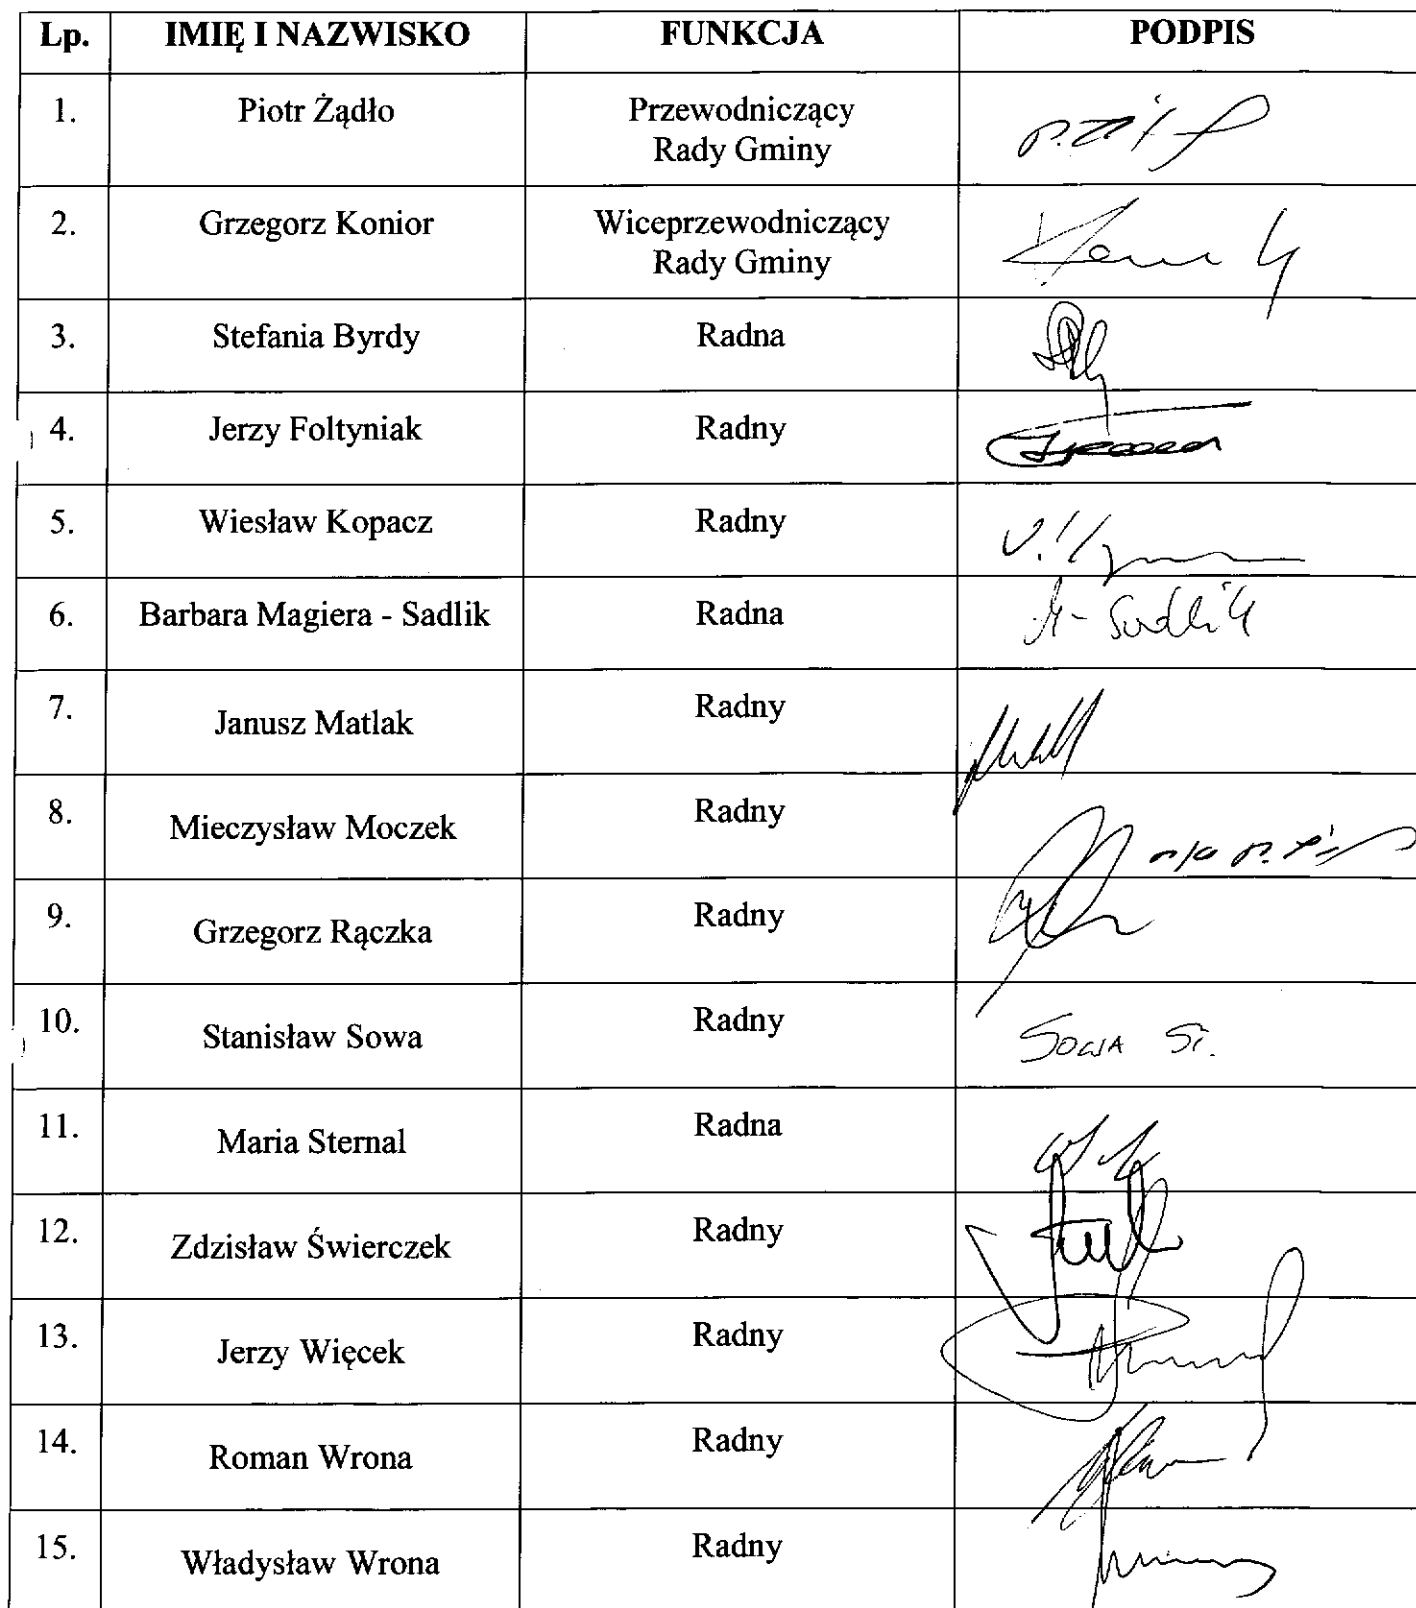 Lp. IMIĘ I NAZWISKO FUNKCJA PODPIS
1. Piotr Żądło Przewodniczący
Rady Gminy
2. Grzegorz Konior Wiceprzewodniczący
Rady Gminy
3. Stefania Byrdy Radna
4. Jerzy Foltyniak Radny
5. Wiesław Kopacz Radny
6. Barbara Magiera - Sadlik Radna M-Sadlik
7. Janusz Matlak Radny
8. Mieczysław Moczek Radny
9. Grzegorz Rączka Radny
10. Stanisław Sowa Radny SOWA ST.
11. Maria Sternal Radna
12. Zdzisław Świerczek Radny
13. Jerzy Więcek Radny
14. Roman Wrona Radny
15. Władysław Wrona Radny